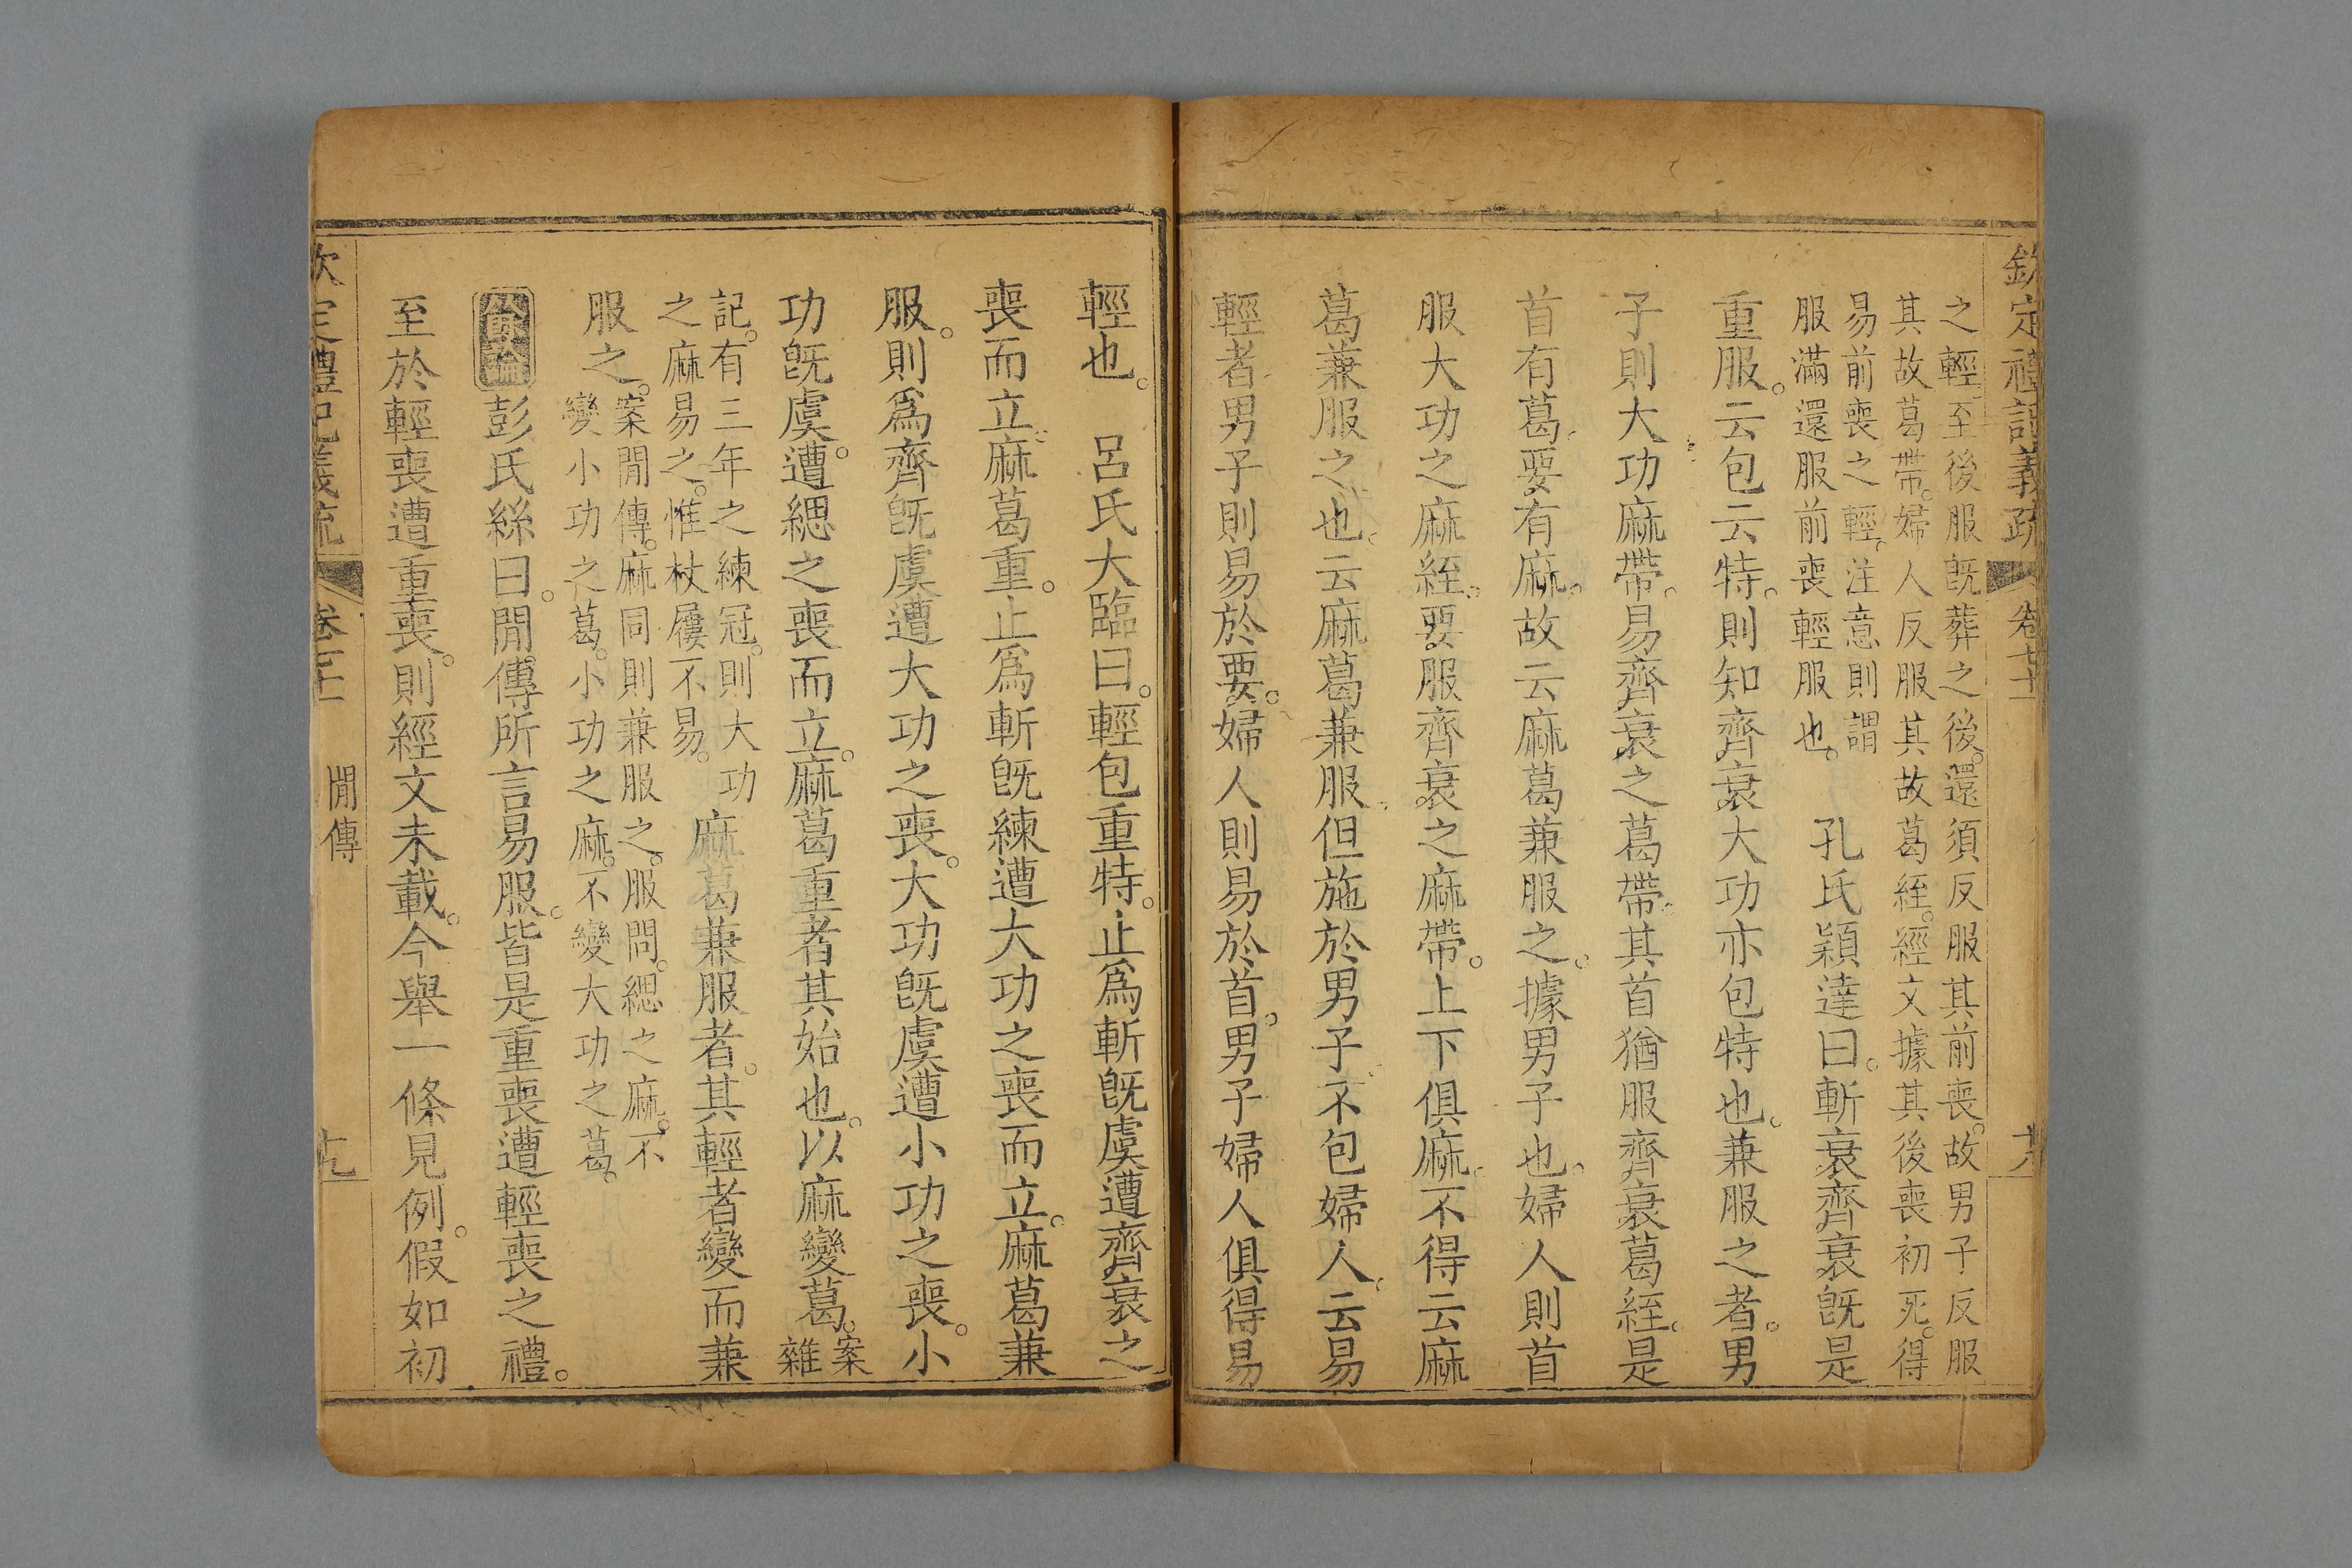 欽定禮記義疏 卷七十二 十八
之輕至後服既葬之後。還須反服其前喪。故男子反服
其故葛帶。婦人反服其故葛絰。經文據其後喪初死。得
易前喪之輕。注意則謂
服滿還服前喪輕服也。
孔氏穎達曰。斬衰齊衰既是
重服。云包云特。則知齊衰大功亦包特也。兼服之者。男
子則大功麻帶。易齊衰之葛帶。其首猶服齊衰葛絰。是
首有葛。要有麻。故云麻葛兼服之。據男子也。婦人則首
服大功之麻絰。要服齊衰之麻帶。上下俱麻。不得云麻
葛兼服之也。云麻葛兼服。但施於男子。不包婦人。云易
輕者男子則易於要。婦人則易於首。男子婦人俱得易
輕也。 呂氏大臨曰。輕包重特。止為斬既虞遭齊衰之
喪而立。麻葛重。止為斬既練遭大功之喪而立。麻葛兼
服。則為齊既虞遭大功之喪。大功既虞遭小功之喪。小
功既虞。遭緦之喪而立。麻葛重者其始也。以麻變葛。
案
雜
記。有三年之練冠。則大功
之麻易之。惟杖屨不易。
麻葛兼服者。其輕者變而兼
服之。
案閒傳。麻同則兼服之。服問。緦之麻。不
變小功之葛。小功之麻。不變大功之葛。
餘論 彭氏絲曰。閒傳所言易服。皆是重喪遭輕喪之禮。
至於輕喪遭重喪。則經文未載。今舉一條見例。假如初
欽定禮記義疏 卷七十二 閒傳 十九